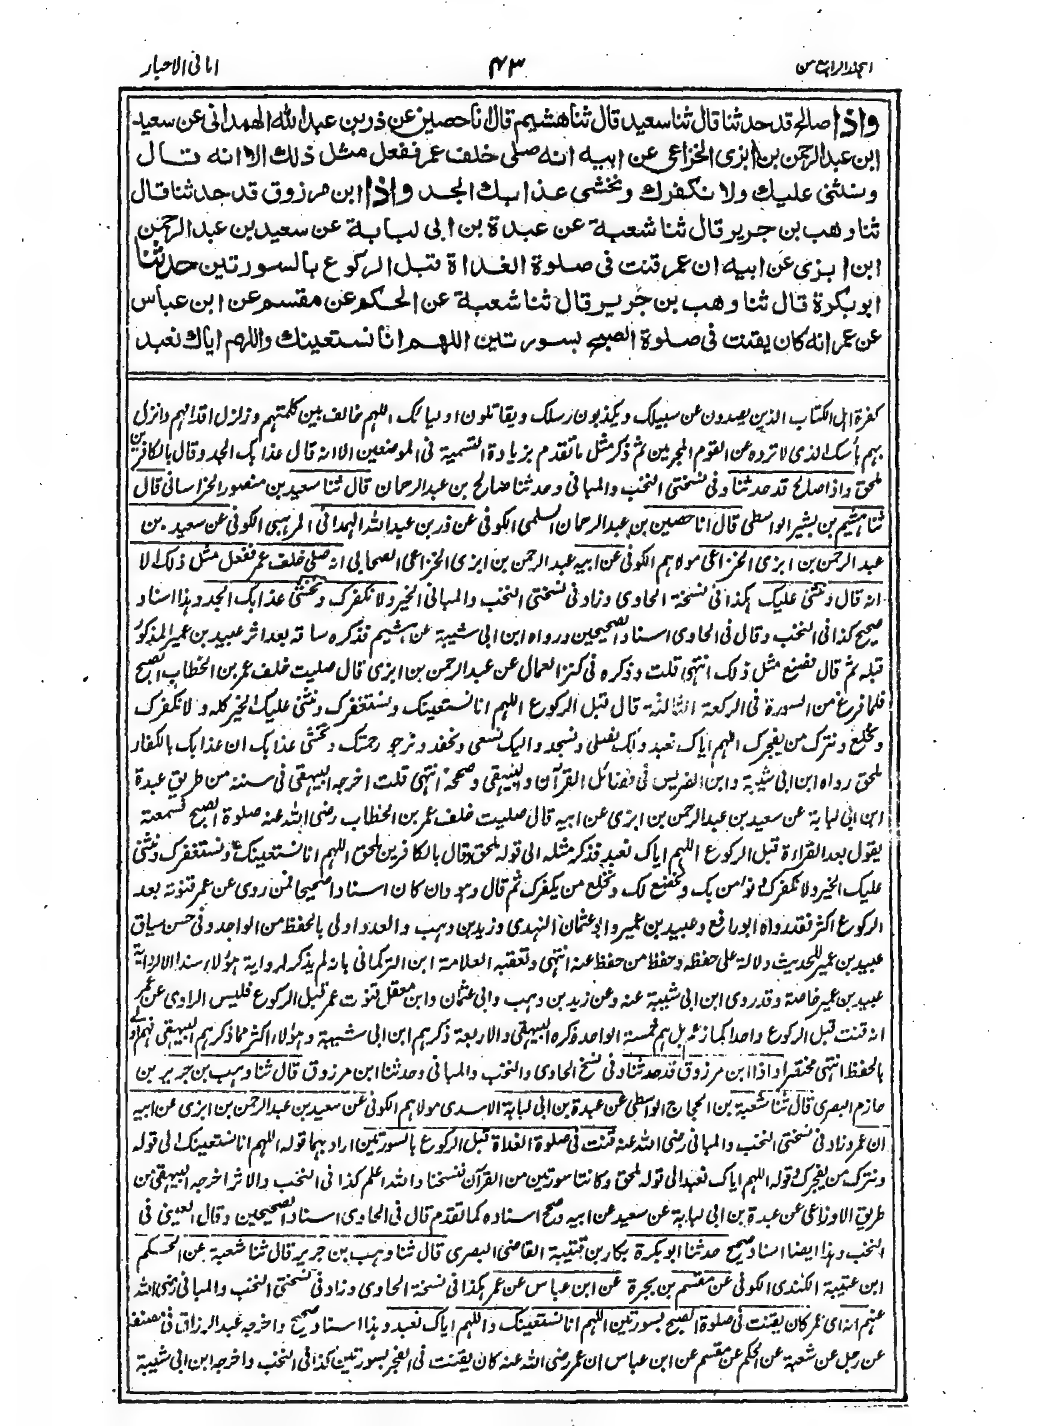 المجلد الرابع من
۴۳
امانی الاحبار
واذا صالح قد حدثنا قال ثنا سعيد قال ثنا هشيم قال انا حصين عن ذر بن عبد الله الهمدانی عن سعيد
ابن عبد الرحمن بن ابزی الخزاعی عن ابيه انه صلی خلف عمر ففعل مثل ذلك الا انه قال
ونثنی عليك ولا نكفرك ونخشی عذابك الجد واذا ابن مرزوق قد حدثنا قال
ثنا وهب بن جرير قال ثنا شعبة عن عبدة بن ابی لبابة عن سعيد بن عبد الرحمن
ابن ابزی عن ابيه ان عمر قنت فی صلوة الغداة قبل الركوع بالسورتين حدثنا
ابو بكرة قال ثنا وهب بن جرير قال ثنا شعبة عن الحكم عن مقسم عن ابن عباس
عن عمر انه كان يقنت فی صلوة الصبح بسورتين اللهم انا نستعينك واللهم اياك نعبد
كفرة اهل الكتاب الذين يصدون عن سبيلك ويكذبون رسلك ويقاتلون اولياءك اللهم خالف بين كلمتهم وزلزل اقدامهم وانزل
بهم بأسك الذی لا ترده عن القوم المجرمين ثم ذكر مثل ما تقدم بزيادة التسمية فی الموضعين الا انه قال عذابك الجد وقال بالكافرين
ملحق واذا صالح قد حدثنا وفی نسختی النخب والمبانی وحدثنا صالح بن عبد الرحمان قال ثنا سعيد بن منصور الخراسانی قال
ثنا هشيم بن بشير الواسطی قال انا حصين بن عبد الرحمان السلمی الكوفی عن ذر بن عبد الله الهمدانی المرهبی الكوفی عن سعيد بن
عبد الرحمن بن ابزی الخزاعی مولاهم الكوفی عن ابيه عبد الرحمن بن ابزی الخزاعی الصحابی انه صلی خلف عمر ففعل مثل ذلك الا
انه قال ونثنی عليك هكذا فی نسخة الحاوی وزاد فی نسختی النخب والمبانی الخير ولا نكفرك ونخشی عذابك الجد وهذا اسناد
صحيح كذا فی النخب وقال فی الحاوی اسناد الصحيحين ورواه ابن ابی شيبة عن هشيم فذكره ساقه بعد اثر عبيد بن عمير المذكور
قبله ثم قال فصنع مثل ذلك انتهی قلت وذكره فی كنز العمال عن عبد الرحمن بن ابزی قال صليت خلف عمر بن الخطاب الصبح
فلما فرغ من السورة فی الركعة الثانية قال قبل الركوع اللهم انا نستعينك ونستغفرك ونثنی عليك الخير كله ولا نكفرك
ونخلع ونترك من يفجرك اللهم اياك نعبد ولك نصلی ونسجد واليك نسعی ونحفد ونرجو رحمتك ونخشی عذابك ان عذابك بالكفار
ملحق رواه ابن ابی شيبة وابن الضريس فی فضائل القرآن والبيهقی وصححه انتهی قلت اخرجه البيهقی فی سننه من طريق عبدة
ابن ابی لبابة عن سعيد بن عبد الرحمن بن ابزی عن ابيه قال صليت خلف عمر بن الخطاب رضی الله عنه صلوة الصبح فسمعته
يقول بعد القراءة قبل الركوع اللهم اياك نعبد فذكر مثله الی قوله ملحق وقال بالكافرين ملحق اللهم انا نستعينك ونستغفرك ونثنی
عليك الخير ولا نكفرك ونؤمن بك ونخضع لك ونخلع من يكفرك ثم قال وهو وان كان اسنادا صحيحا فمن روی عن عمر قنوته بعد
الركوع اكثر فقد رواه ابو رافع وعبيد بن عمير وابو عثمان النهدی وزيد بن وهب والعدد اولی بالحفظ من الواحد وفی حسن سياق
عبيد بن عمير للحديث دلالة علی حفظه وحفظ من حفظ عنه انتهی وتعقبه العلامة ابن التركمانی بانه لم يذكر لرواية هؤلاء سندا الا لرواية
عبيد بن عمير خاصة وقد روی ابن ابی شيبة عنه وعن زيد بن وهب وابی عثمان وابن معقل قنوت عمر قبل الركوع فليس الراوی عن عمر
انه قنت قبل الركوع واحدا كما زعم بل هم خمسة الواحد ذكره البيهقی والاربعة ذكرهم ابن ابی شيبة وهؤلاء اكثر مما ذكرهم البيهقی فهم اولی
بالحفظ انتهی مختصرا واذا ابن مرزوق قد حدثنا وفی نسخ الحاوی والنخب والمبانی وحدثنا ابن مرزوق قال ثنا وهب بن جرير بن
حازم البصری قال ثنا شعبة بن الحجاج الواسطی عن عبدة بن ابی لبابة الاسدی مولاهم الكوفی عن سعيد بن عبد الرحمن بن ابزی عن ابيه
ان عمر وزاد فی نسختی النخب والمبانی رضی الله عنه قنت فی صلوة الغداة قبل الركوع بالسورتين اراد بهما قوله اللهم انا نستعينك الی قوله
ونترك من يفجرك وقوله اللهم اياك نعبد الی قوله ملحق وكانتا سورتين من القرآن نسختا والله اعلم كذا فی النخب والاثر اخرجه البيهقی من
طريق الاوزاعی عن عبدة بن ابی لبابة عن سعيد عن ابيه وصحح اسناده كما تقدم قال فی الحاوی اسناد الصحيحين وقال العينی فی
النخب وهذا ايضا اسناد صحيح حدثنا ابو بكرة بكار بن قتيبة القاضی البصری قال ثنا وهب بن جرير قال ثنا شعبة عن الحكم
ابن عتيبة الكندی الكوفی عن مقسم بن بجرة عن ابن عباس عن عمر هكذا فی نسخة الحاوی وزاد فی نسختی النخب والمبانی رضی الله
عنهم انه ای عمر كان يقنت فی صلوة الصبح بسورتين اللهم انا نستعينك واللهم اياك نعبد وهذا اسناد صحيح واخرجه عبد الرزاق فی مصنفه
عن رجل عن شعبة عن الحكم عن مقسم عن ابن عباس ان عمر رضی الله عنه كان يقنت فی الفجر بسورتين كذا فی النخب واخرجه ابن ابی شيبة